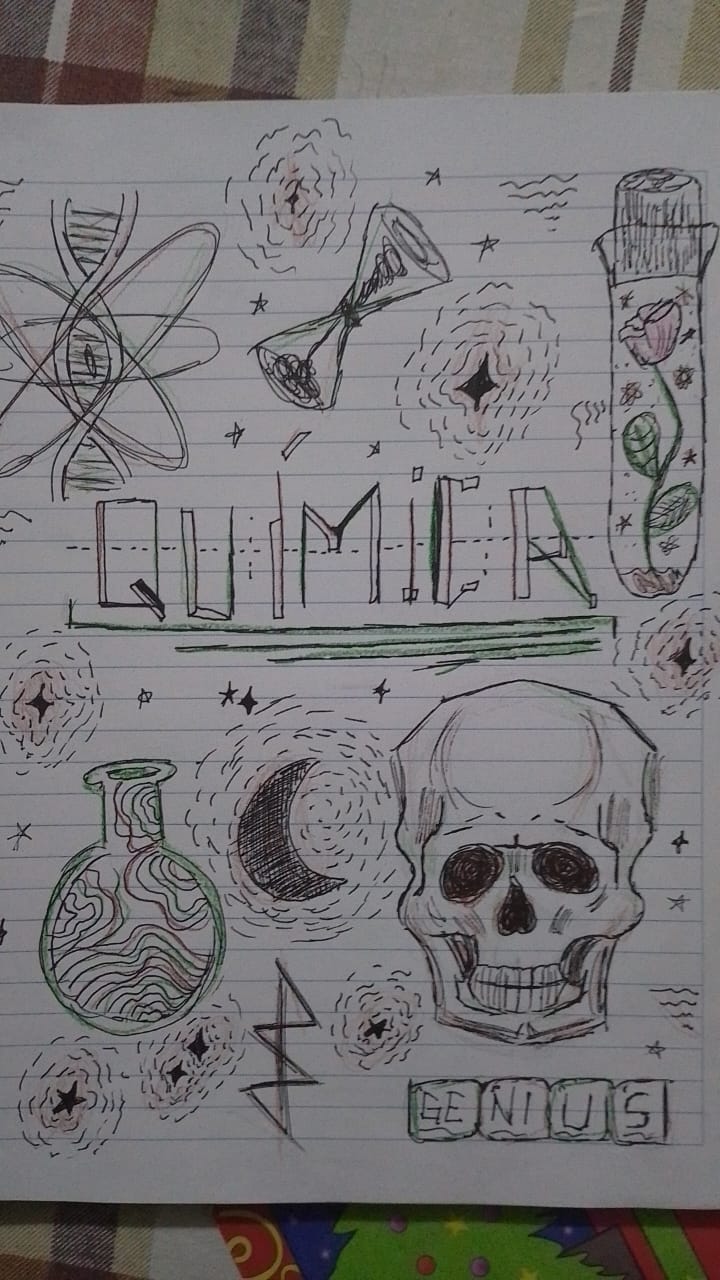 QUIMICA
GENIUS